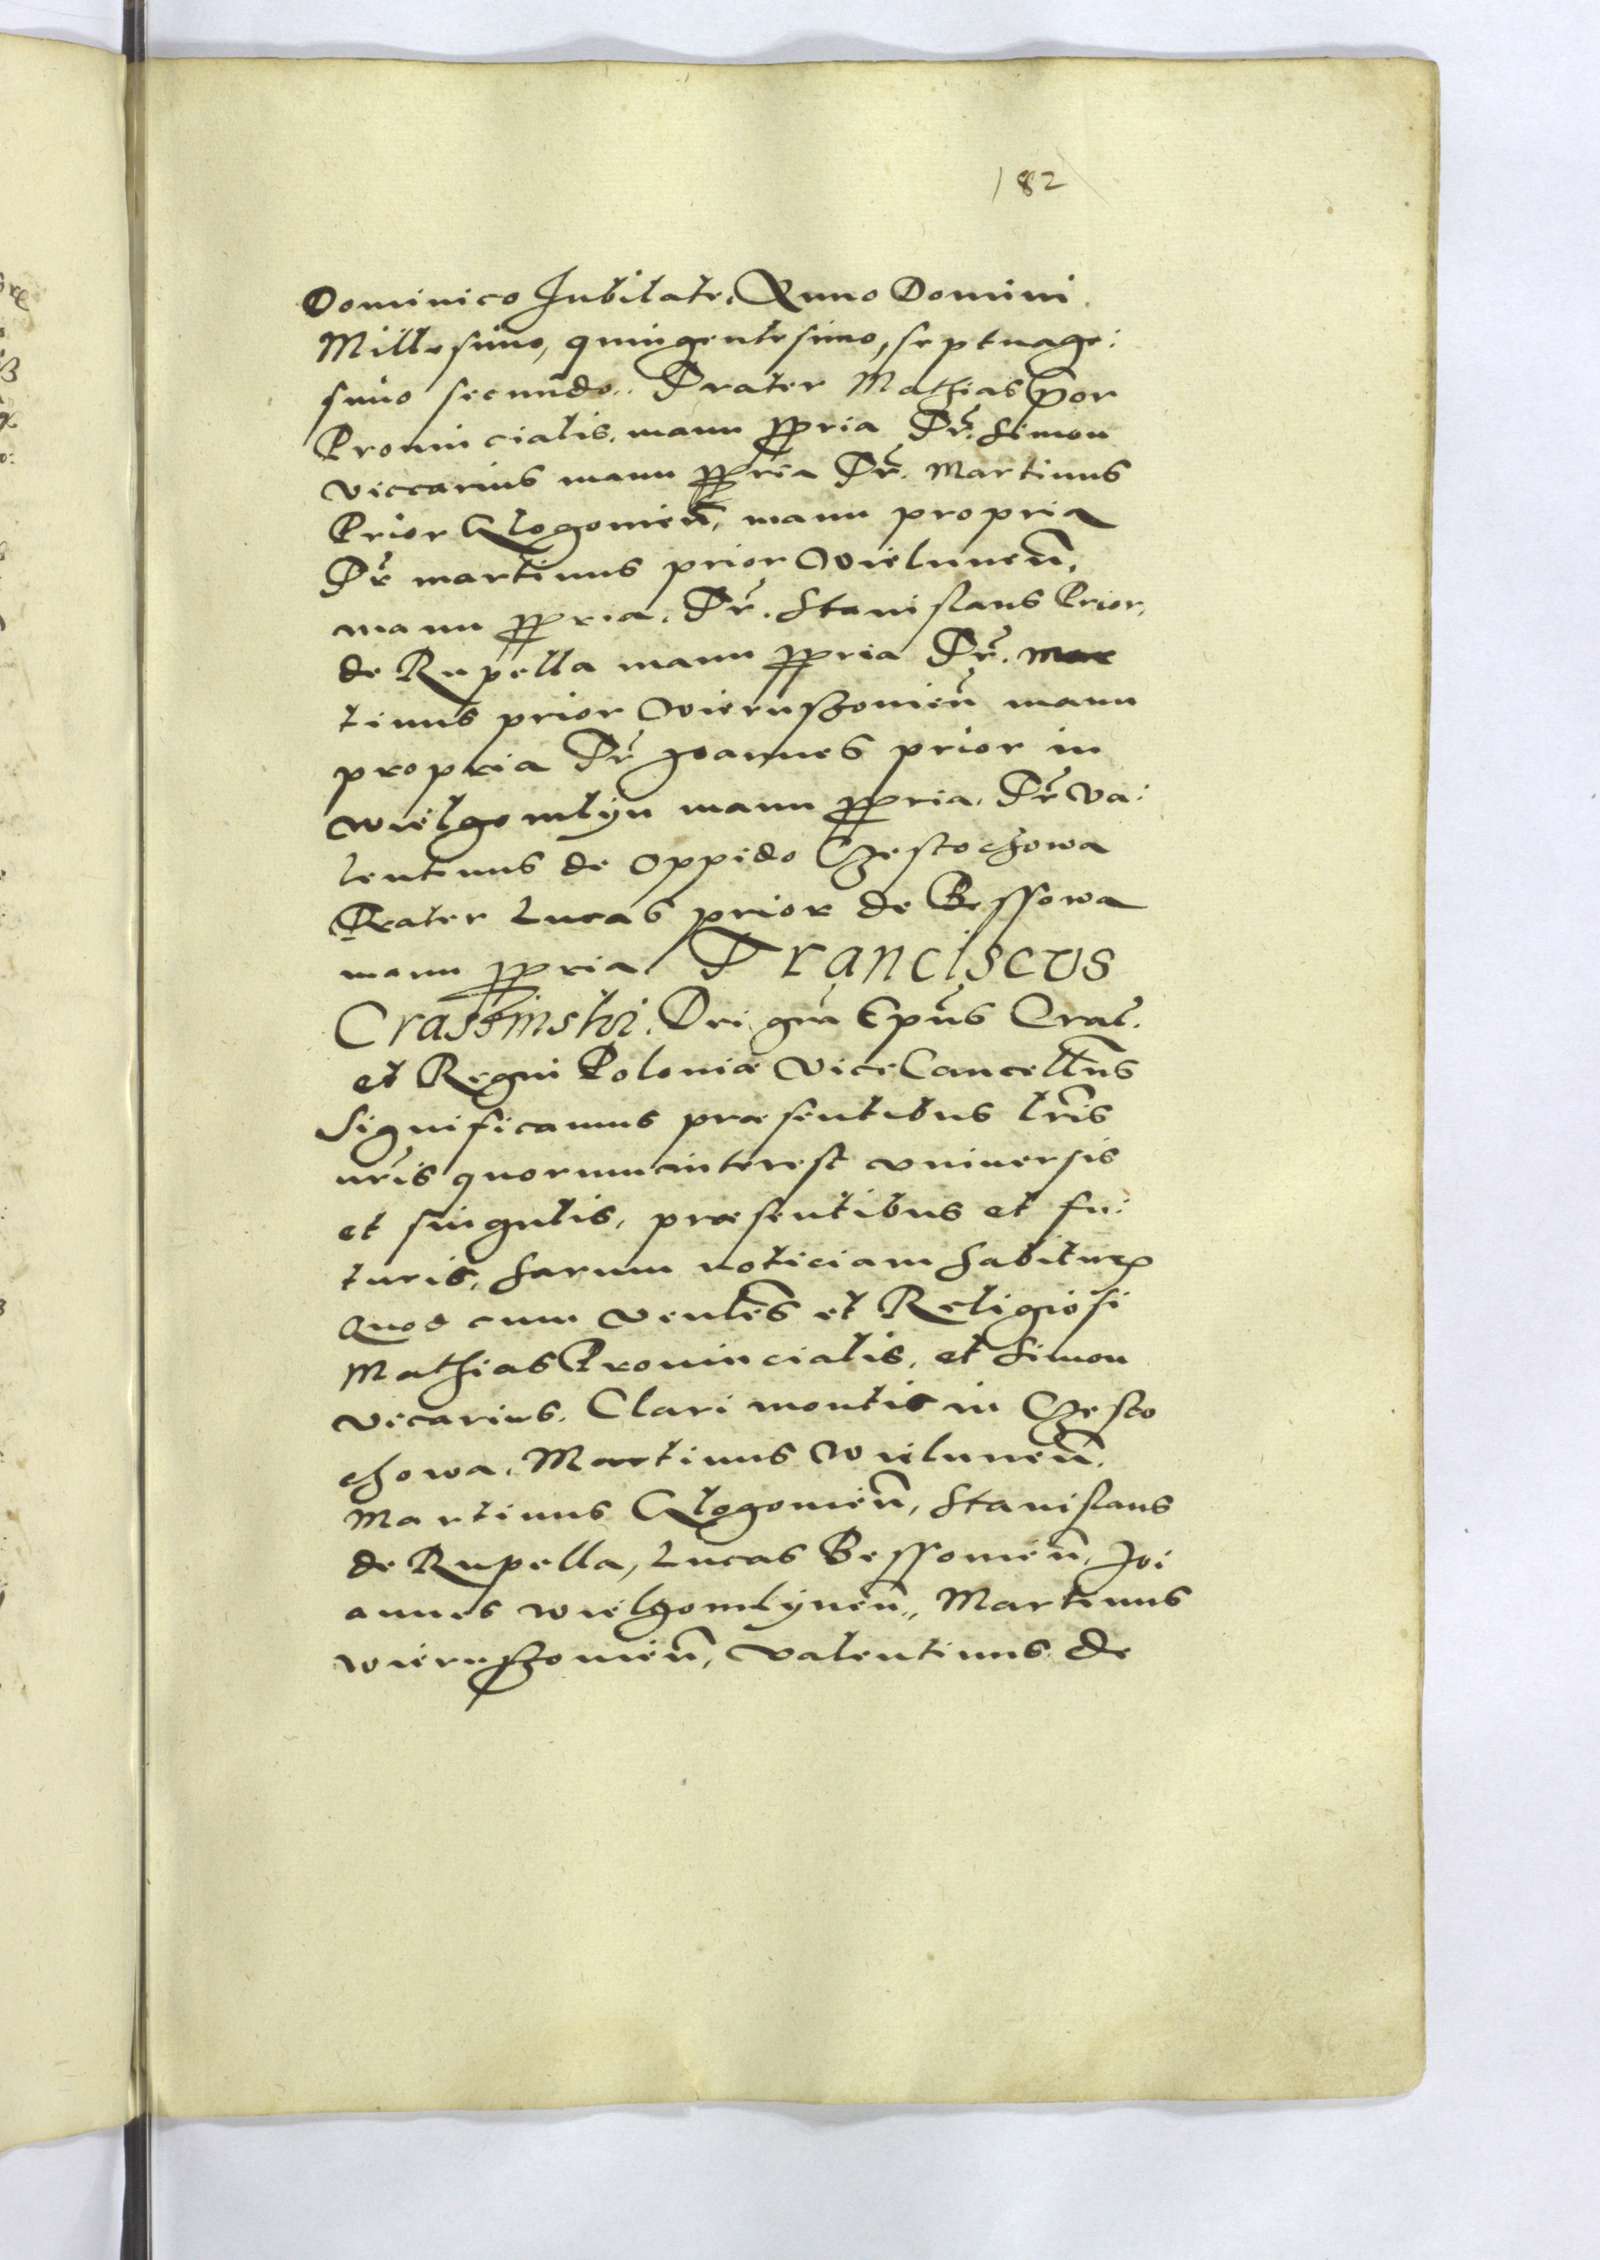 182
Dominico Jubilate, Anno Domini
Millesimo, quingentesimo, septuage:
simo secundo. Frater Mathias P̃or
Prouincialis, manu ppria Fr̃. Simon
viccarius manu ppria Fr̃. Martinus
Prior Glogouień, manu propria
Fr̃ martinus prior Wieluneñ,
manu ppria, Fr̃. Stanislaus Prior,
de Rupella manu ppria Fr̃. Mar
tinus prior Wieruszouieñ manu
propria Fr̃ Joannes prior in
wielgomlyn manu ppria, Fr̃ Va:
lentinus de oppido Czestochowa
Frater Lucas prior de Bessowa
manu ppria. Franciscus
Crassinski. Dei grã Epũs Crac̃.
et Regni Poloniæ ViceCancellr̃ius
Significamus præsentibus lr̃is
nr̃is quorum interest vniuersis
et singulis, præsentibus et fu:
turis, harum noticiam habiturꝭ
Quod cum venlẽs et Religiosi
Mathias Prouincialis, et Simon
vicarius. Clari montis in Czesto
chowa, Martinus Wieluneñ.
Martinus Glogouieñ, Stanislaus
de Rupella, Lucas Bessouieñ, Jo:
annes wielgomlyneñ, Martinus
wieruszouieñ, Valentinus de